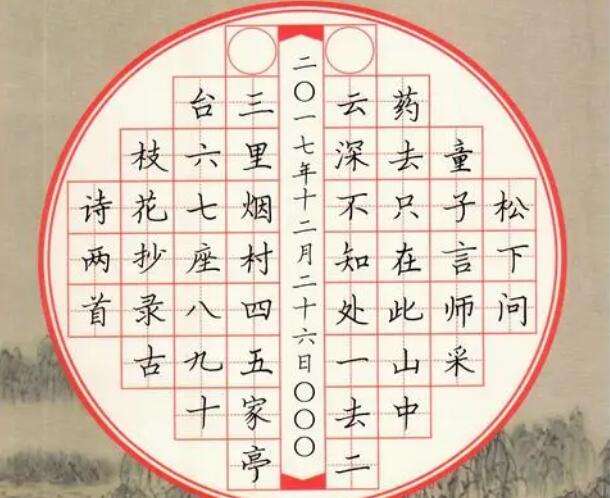 松下问
童子言师采
药去只在此山中
云深不知处一去二
二〇一七年十二月二十六日〇〇〇
三里烟村四五家亭
台六七座八九十
枝花抄录古
诗两首